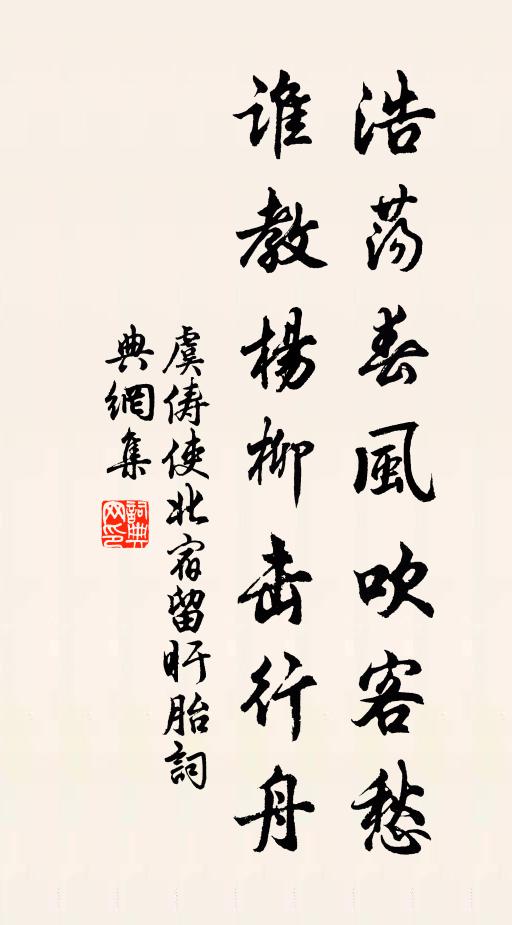 浩荡春風吹客愁
谁教楊柳击行舟
虞俦使北宿留盱胎詞
典網集
詞典网印